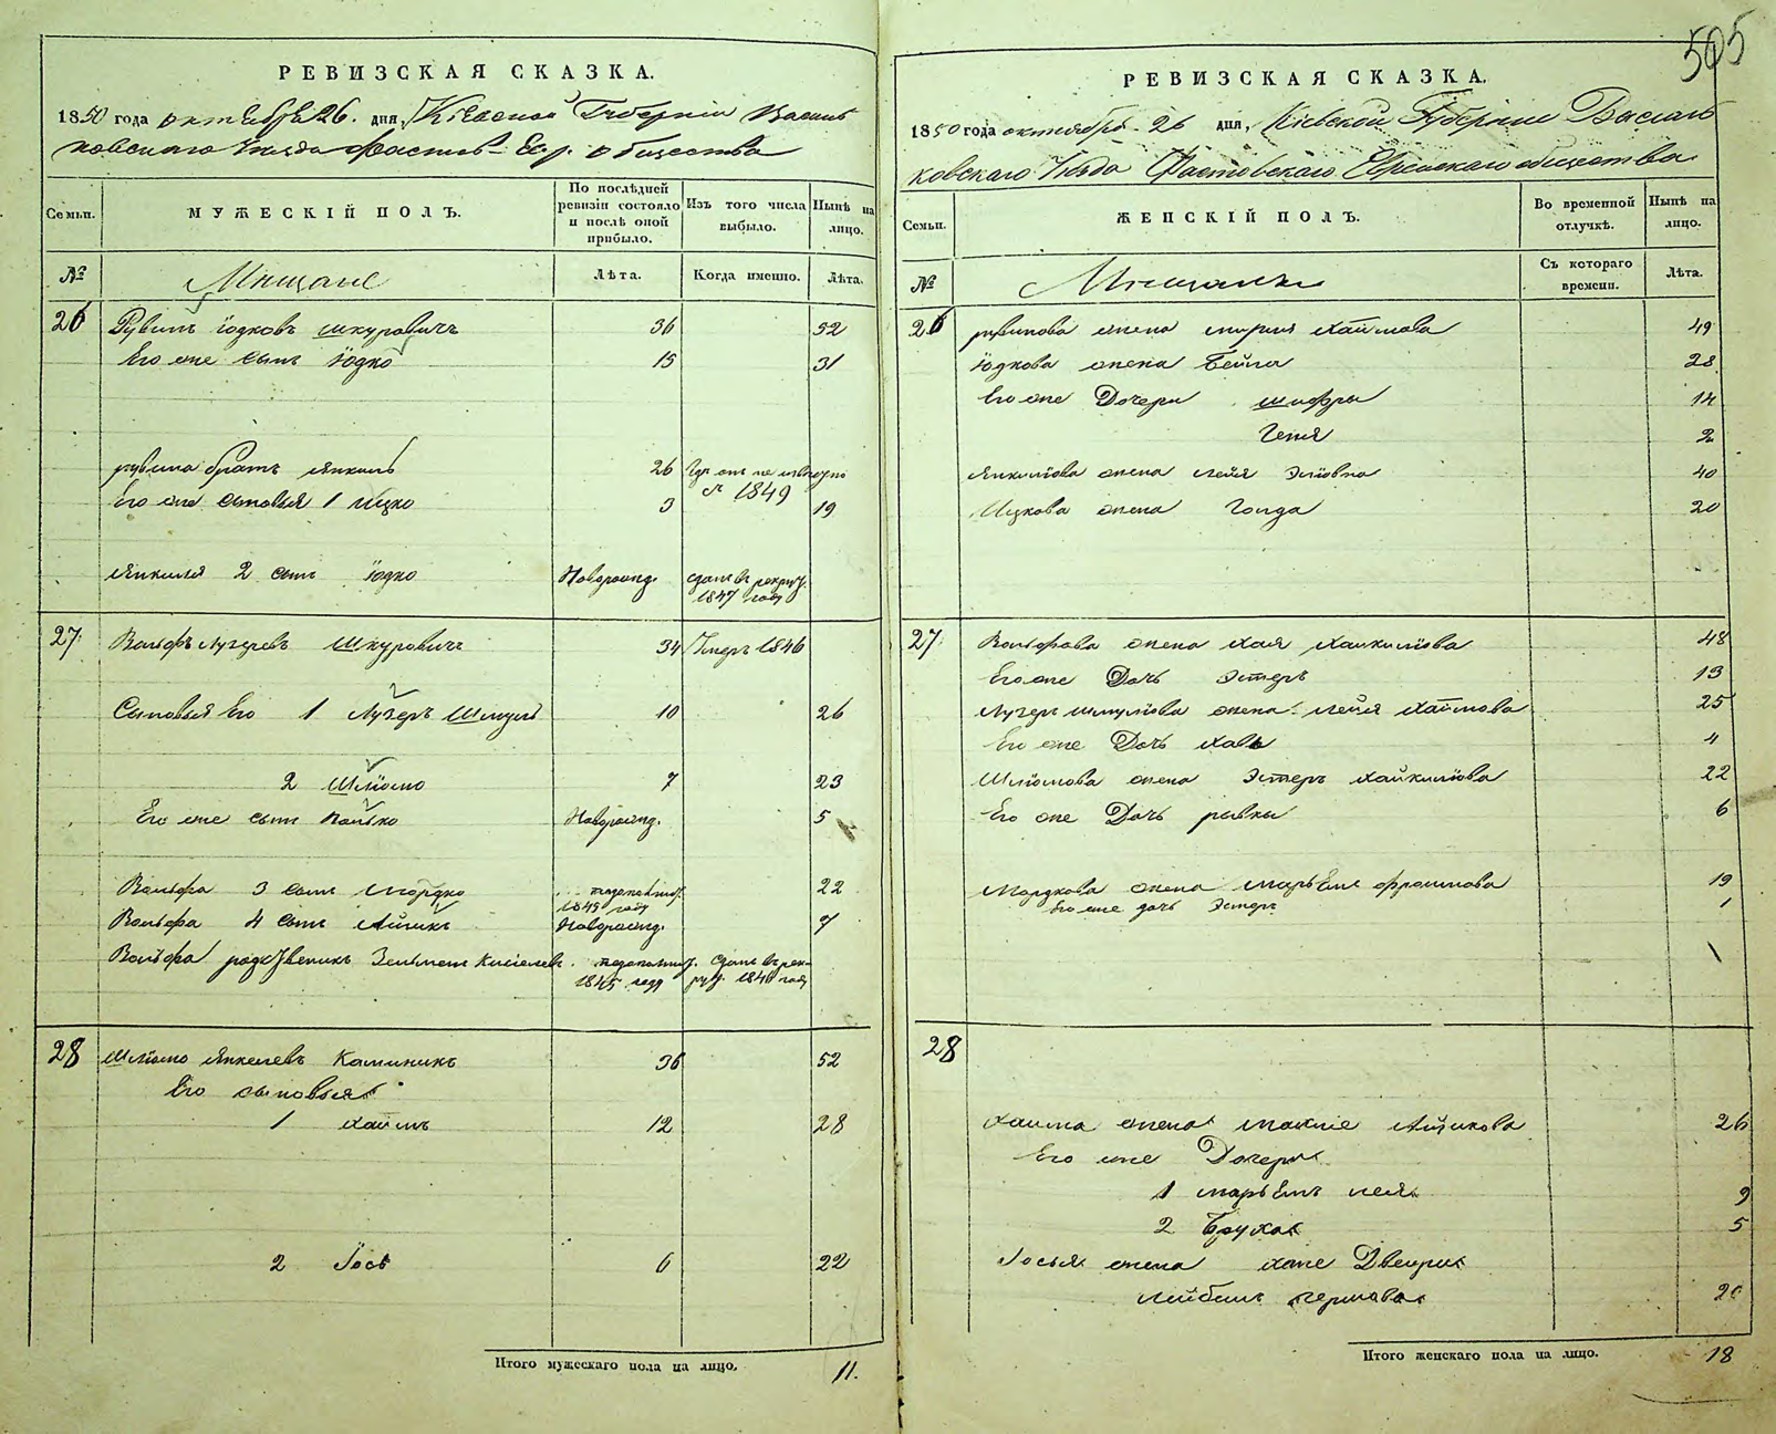 РЕВИЗСКАЯ СКАЗКА.
1850 года октября 26. дня, Кіевской Губерніи Василь
ковскаго Уезда Фастов. Евр. общества
Семьи. МУЖЕСКІЙ ПОЛЪ. По послѣдней ревизіи состояло и послѣ оной прибыло. Изъ того числа выбыло. Нынѣ на лицо.
№ Мещане Лѣта. Когда именно. Лѣта.
26 Рувинъ Іодковъ Шкуровичъ 36 52
Его же сынъ Іодко 15 31
Рувина братъ Янкель 26 Где онъ не извѣстно
съ 1849
Его же сыновья 1 Ицко 3 19
Янкеля 2 сынъ Іодко Наворожд. сданъ въ рекрут.
1847 году
27 Вольфъ Лузеревъ Шкуровичъ 34 Умеръ 1846
Сыновья Его 1 Лузеръ Шмуль 10 26
2 Шліомо 7 23
Его же сынъ Налько Наворожд. 5
Вольфа 3 сынъ Мордко 22
1845 году
Вольфа 4 сынъ Айзикъ Наворожд. 7
Вольфа родственикъ Зельмен Киселевъ сданъ въ рек-
1845 года рут. 1846 году
28 Шліомо Янкелевъ Каминикъ 36 52
Его сыновья
1 Хаимъ 12 28
2 Іось 6 22
Итого мужескаго пола на лицо. 11.
505
РЕВИЗСКАЯ СКАЗКА.
1850 года октября 26 дня, Кіевской Губерніи Василь
ковскаго Уезда Фастовскаго Еврейскаго общества
Семьи. ЖЕНСКІЙ ПОЛЪ. Во временной отлучкѣ. Нынѣ на лицо.
№ Мещанки Съ котораго времени. Лѣта.
26 Рувинова жена Хаимова 49
Іодкова жена Бейла 28
Его же Дочери Шифры 14
Геня 2
Янкилова жена Лейя 40
Ицкова жена Голда 20
27 Вольфова жена Хая 48
Его же Дочь Эстеръ 13
Лузеръ Шмулова жена Лейя Хаимова 25
Его же Дочь Хава 4
Шліомова жена Эстеръ 22
Его же Дочь Ривка 6
Мордкова жена Марьемъ Фроимова 19
Его же дочь Эстеръ 1
28
Хаима жена Айзикова 26
Его же Дочери
1 Марьемъ Лея 9
2 Бруха 5
Іосья жена Хане Двейра
20
Итого женскаго пола на лицо. 18